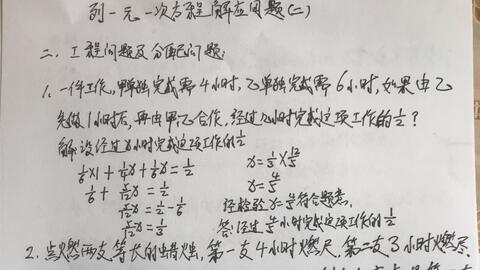 列一元一次方程解应用题(二)
二、工程问题及分配问题:
1、一件工作,甲单独完成需4小时,乙单独完成需6小时,如果由乙
先做1小时后,再由甲乙合作,经过几小时完成这项工作的1/2?
解:设经过x小时完成这项工作的1/2
1/6×1+1/4x+1/6x=1/2 x=1/3×12/5
1/6+5/12x=1/2 x=4/5
5/12x=1/2-1/6 经检验x=4/5符合题意,
5/12x=1/3 答:经过4/5小时完成这项工作的1/2
2、点燃两支等长的蜡烛,第一支4小时燃尽,第二支3小时燃尽,